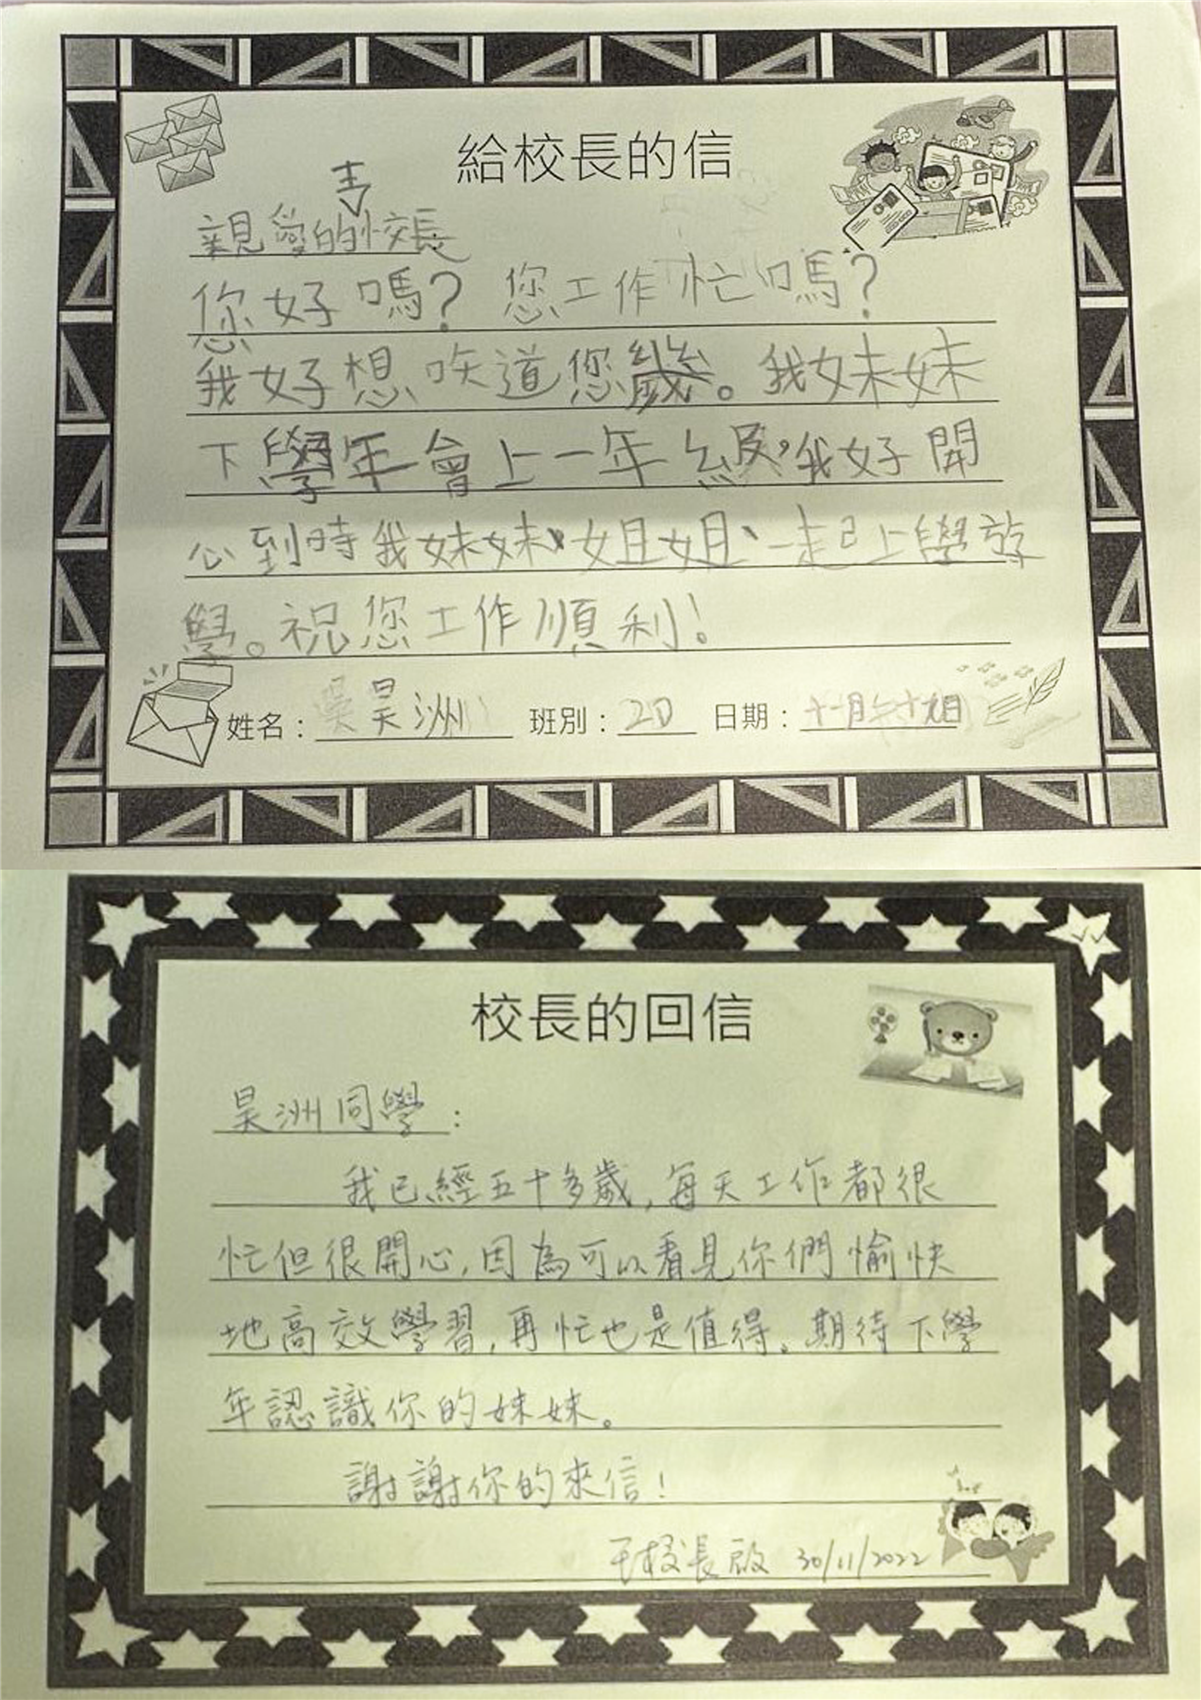 給校長的信
親愛的校長
您好嗎?您工作忙嗎?
我好想知道您幾歲。我妹妹
下學年會上一年級,我好開
心到時我妹妹、姐姐、一起上學放
學。祝您工作順利!
姓名:吳昊洲 班別:2D 日期:
校長的回信
昊洲同學:
我已經五十多歲,每天工作都很
忙但很開心,因為可以看見你們愉快
地高效學習,再忙也是值得。期待下學
年認識你的妹妹。
謝謝你的來信!
王校長啟 30/11/2022